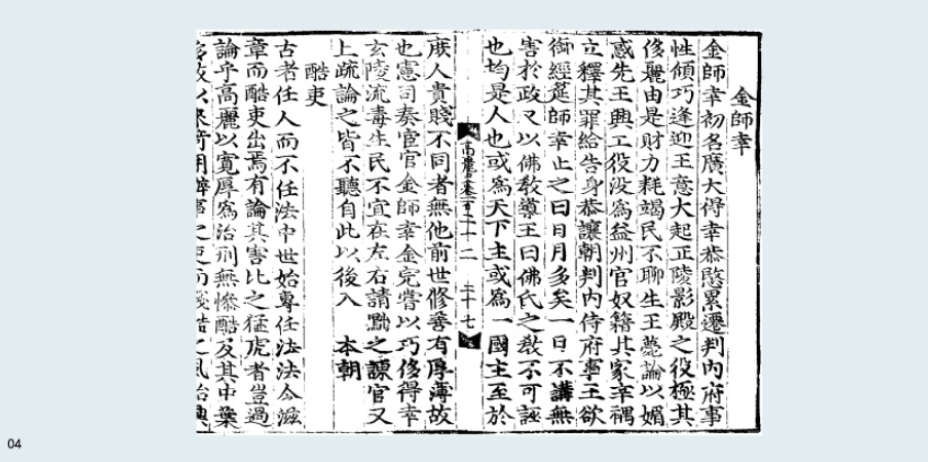 金師幸
金師幸初名廣大得幸恭愍累遷判內府事
性傾巧逢迎王意大起正陵影殿之役極其
侈麗由是財力耗竭民不聊生王薨論以媚
惑先王興工役没爲益州官奴籍其家辛禑
立釋其罪給告身恭讓朝判內侍府事王欲
御經筵師幸止之曰日月多矣一日不講無
害於政又以佛教導王曰佛氏之敎不可誣
也均是人也或爲天下主或爲一國主至於
高麗史卷一百二十二 三十七
庶人貴賤不同者無他前世修善有厚薄故
也憲司奏宦官金師幸金完嘗以巧侈得幸
玄陵流毒生民不宜在左右請黜之諫官又
上疏論之皆不聽自此以後入 本朝
酷吏
古者任人而不任法中世始專任法法令滋
章而酷吏出焉有論其害比之猛虎者豈過
論乎高麗以寬厚爲治刑無慘酷及其中葉